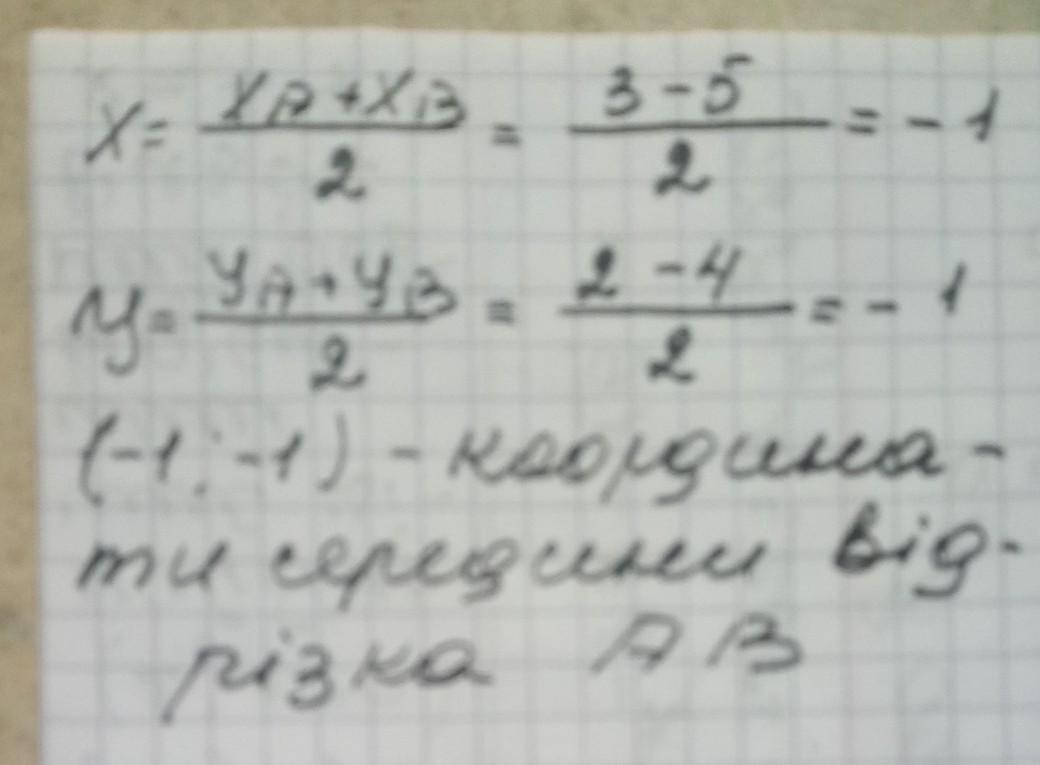 x = (xA + xB)/2 = (3 - 5)/2 = - 1
y = (yA + yB)/2 = (2 - 4)/2 = - 1
(-1; -1) - координа-
ти середини від-
різка AB